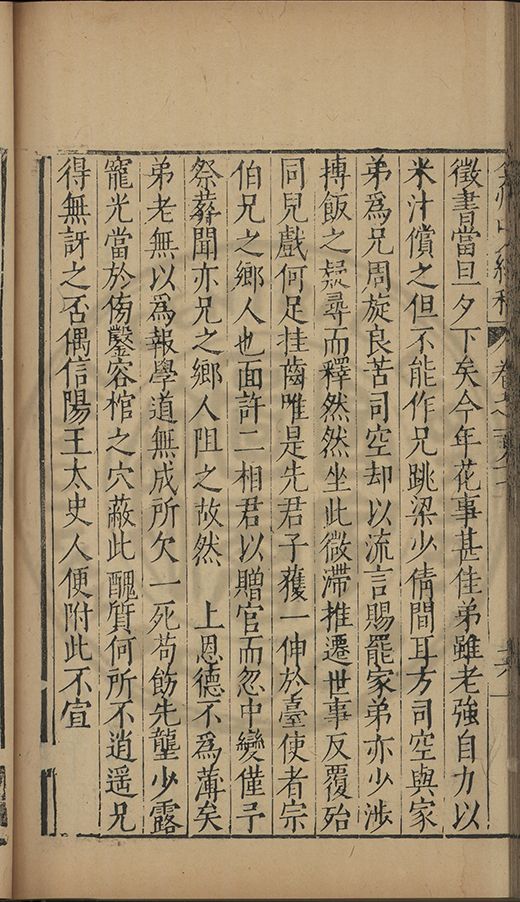 徵書當旦夕下矣今年花事甚佳弟雖老強自力以
米汁償之但不能作兄跳梁少倩間耳方司空與家
弟爲兄周旋良苦司空却以流言賜罷家弟亦少涉
摶飯之疑尋而釋然然坐此微滯推遷世事反覆殆
同兒戲何足挂齒唯是先君子獲一伸於臺使者宗
伯兄之鄉人也面許二相君以贈官而忽中變僅予
祭葬聞亦兄之鄉人阻之故然 上恩德不爲薄矣
弟老無以爲報學道無成所欠一死苟飭先壟少露
寵光當於傍鑿容棺之穴蔽此醜質何所不逍遥兄
得無訝之否偶信陽王太史人便附此不宣